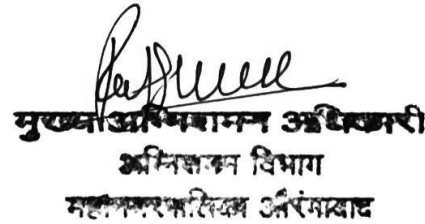 मुख्य अग्निशमन अधिकारी
अग्निशमन विभाग
महानगरपालिका औरंगाबाद